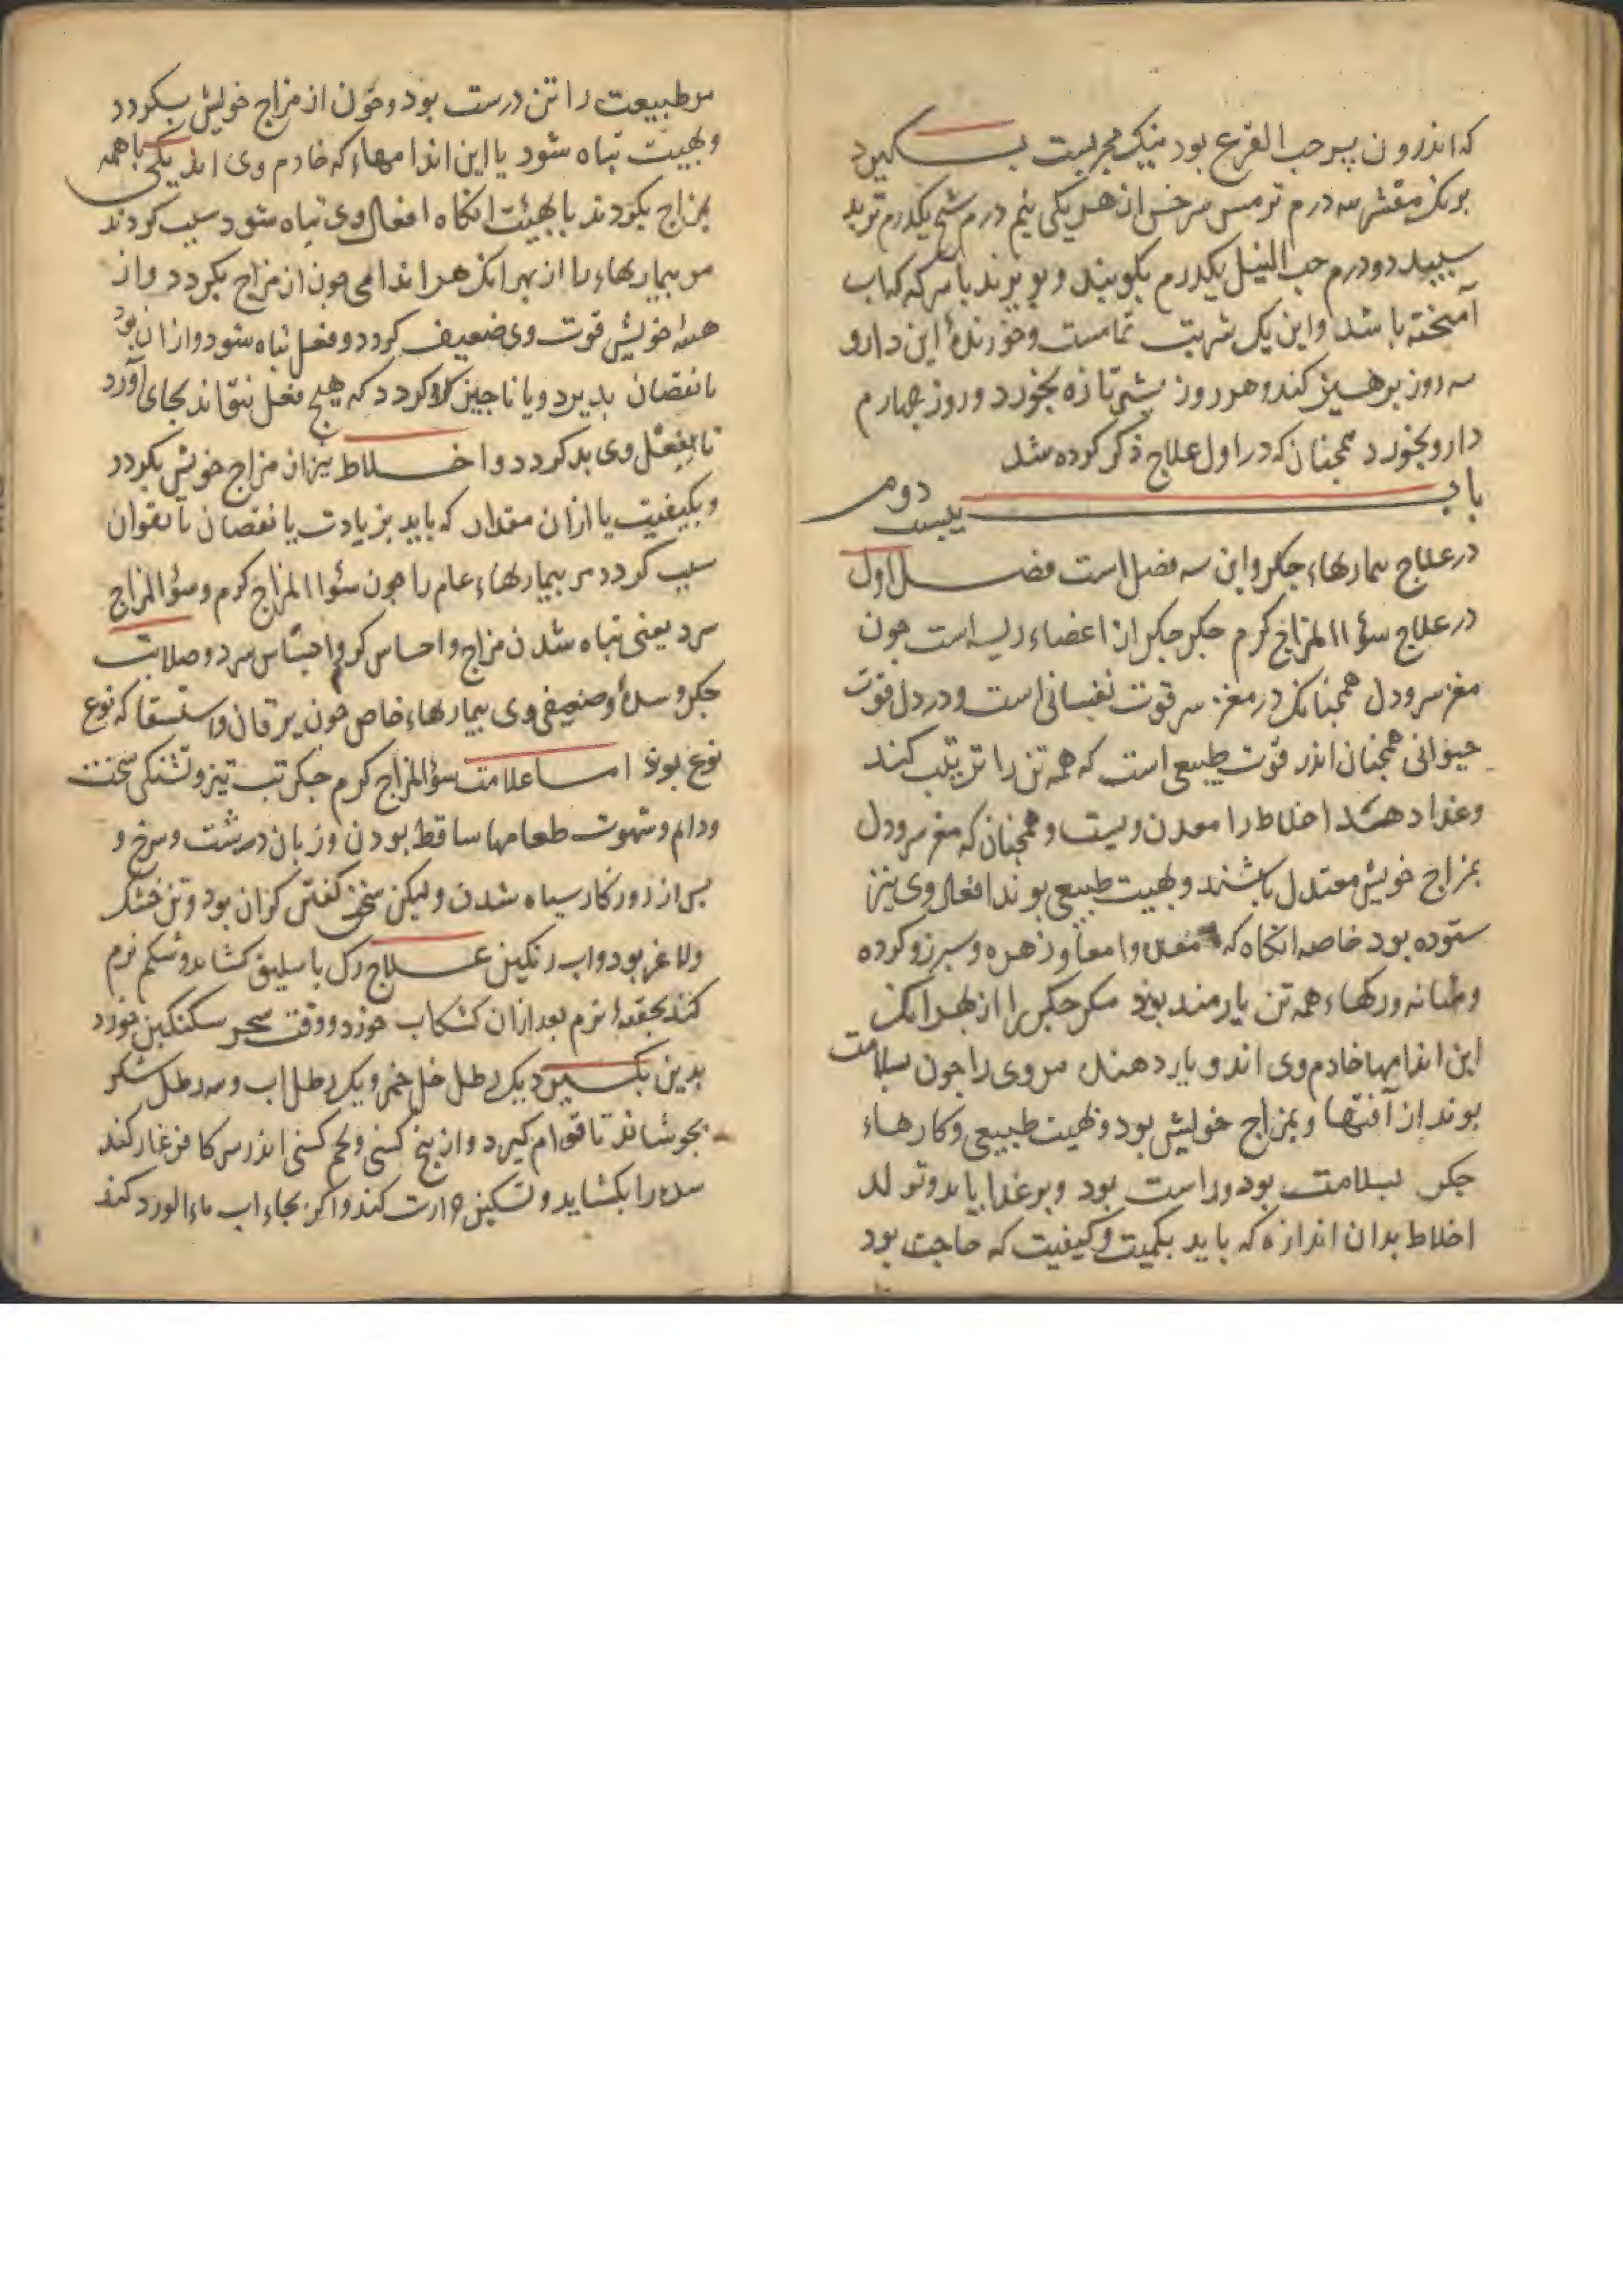 که اندرون پسر حب القرع بود نیک مجربست بکیرد
برنک مقشر سه درم ترمس سرخس از هر یکی نیم درم شیح یکدرم تربد
سپید دو درم حب النیل یکدرم بکوبند و ببزند با سرکه که اب
آمیخته باشد و این یک شربت تمامست و خورندهٔ این دارو
سه روز برهیز کند و هر روز شیر تازه بخورد و روز چهارم
دارو بخورد همجنان که در اول علاج ذکر کرده شد
باب بیست دوم
در علاج بیمارهاء جکر و این سه فصل است فصل اول
در علاج سؤ المزاج کرم جکر جکر از اعضاء رئیسه است جون
مغز سر و دل همجنانک در مغز سر قوت نفسانی است و در دل قوت
حیوانی همجنان اندر قوت طبیعی است که همه تن را ترتیب کند
و غذا دهد اخلاط را معدن ویست و همجنان که مغز سر و دل
بمزاج خویش معتدل باشند و بهیت طبیعی بوند افعال وی نیز
ستوده بود خاصه انکاه که معده و امعا و زهره و سبرز و کرده
و مثانه و رکهاء همه تن یارمند بوند مکر جکر را از بهر انک
این اندامها خادم وی اند و یار دهند مر وی را جون سلامت
بوند از آفتها و بمزاج خویش بود و بهیت طبیعی و کارهاء
جکر بسلامت بود و راست بود و بر غذا یابد و تولد
اخلاط بدان اندازه که باید بکمیت و کیفیت که حاجت بود
مر طبیعت را تن درست بود و جون از مزاج خویش بکردد
و بهییت تباه شود یا این اندامهاء که خادم وی اند یکی با همه
بمزاج بکردند یا بهیئت انکاه افعال وی تباه شود سبب کردند
مر بیماریهاء را از بهر انک هر اندامی جون از مزاج بکردد و از
هیئه خویش قوت وی ضعیف کردد و فعل تباه شود و از ان بود
یا نقصان بدیرد و یا ناجیز کردد که هیچ فعل نتواند بجای آورد
تا بفعل وی بد کردد و اخلاط نیز از مزاج خویش بکردد
و بکیفیت یا از ان مقدار که باید بزیادت یا نقصان تا بقوان
سبب کردد مر بیماریهاء عام را جون سؤ المزاج کرم و سؤ المزاج
سرد یعنی تباه شدن مزاج و احساس کرم و احتباس سرد و صلابت
جکر و سدهٔ و ضعیفی وی بیماریهاء خاص جون یرقان و استسقا که نوع
نوع بوند اما علامت سؤ المزاج کرم جکر تب تیز و تشنکی سخت
و دام و شهوت طعامها ساقط بودن و زبان درشت و سرخ و
بس از روزکار سیاه شدن و لیکن سخن کفتن کران بود و تن خشک
و لاغر بود و اب رنکین علاج رک باسلیق کشاید و شکم نرم
کند بحقنهٔ نرم بعد ازان کشکاب خورد و وقت سحر سکنکبین خورد
بدین بکیرد یک رطل خل خمر و یک رطل اب و سه رطل شکر
بجوشاند تا قوام کیرد و از بیخ کسنی و تخم کسنی اندر سرکا فرغار کند
سده را بکشاید و تسکین حرارت کند و اکر بجاء اب ماء الورد کند